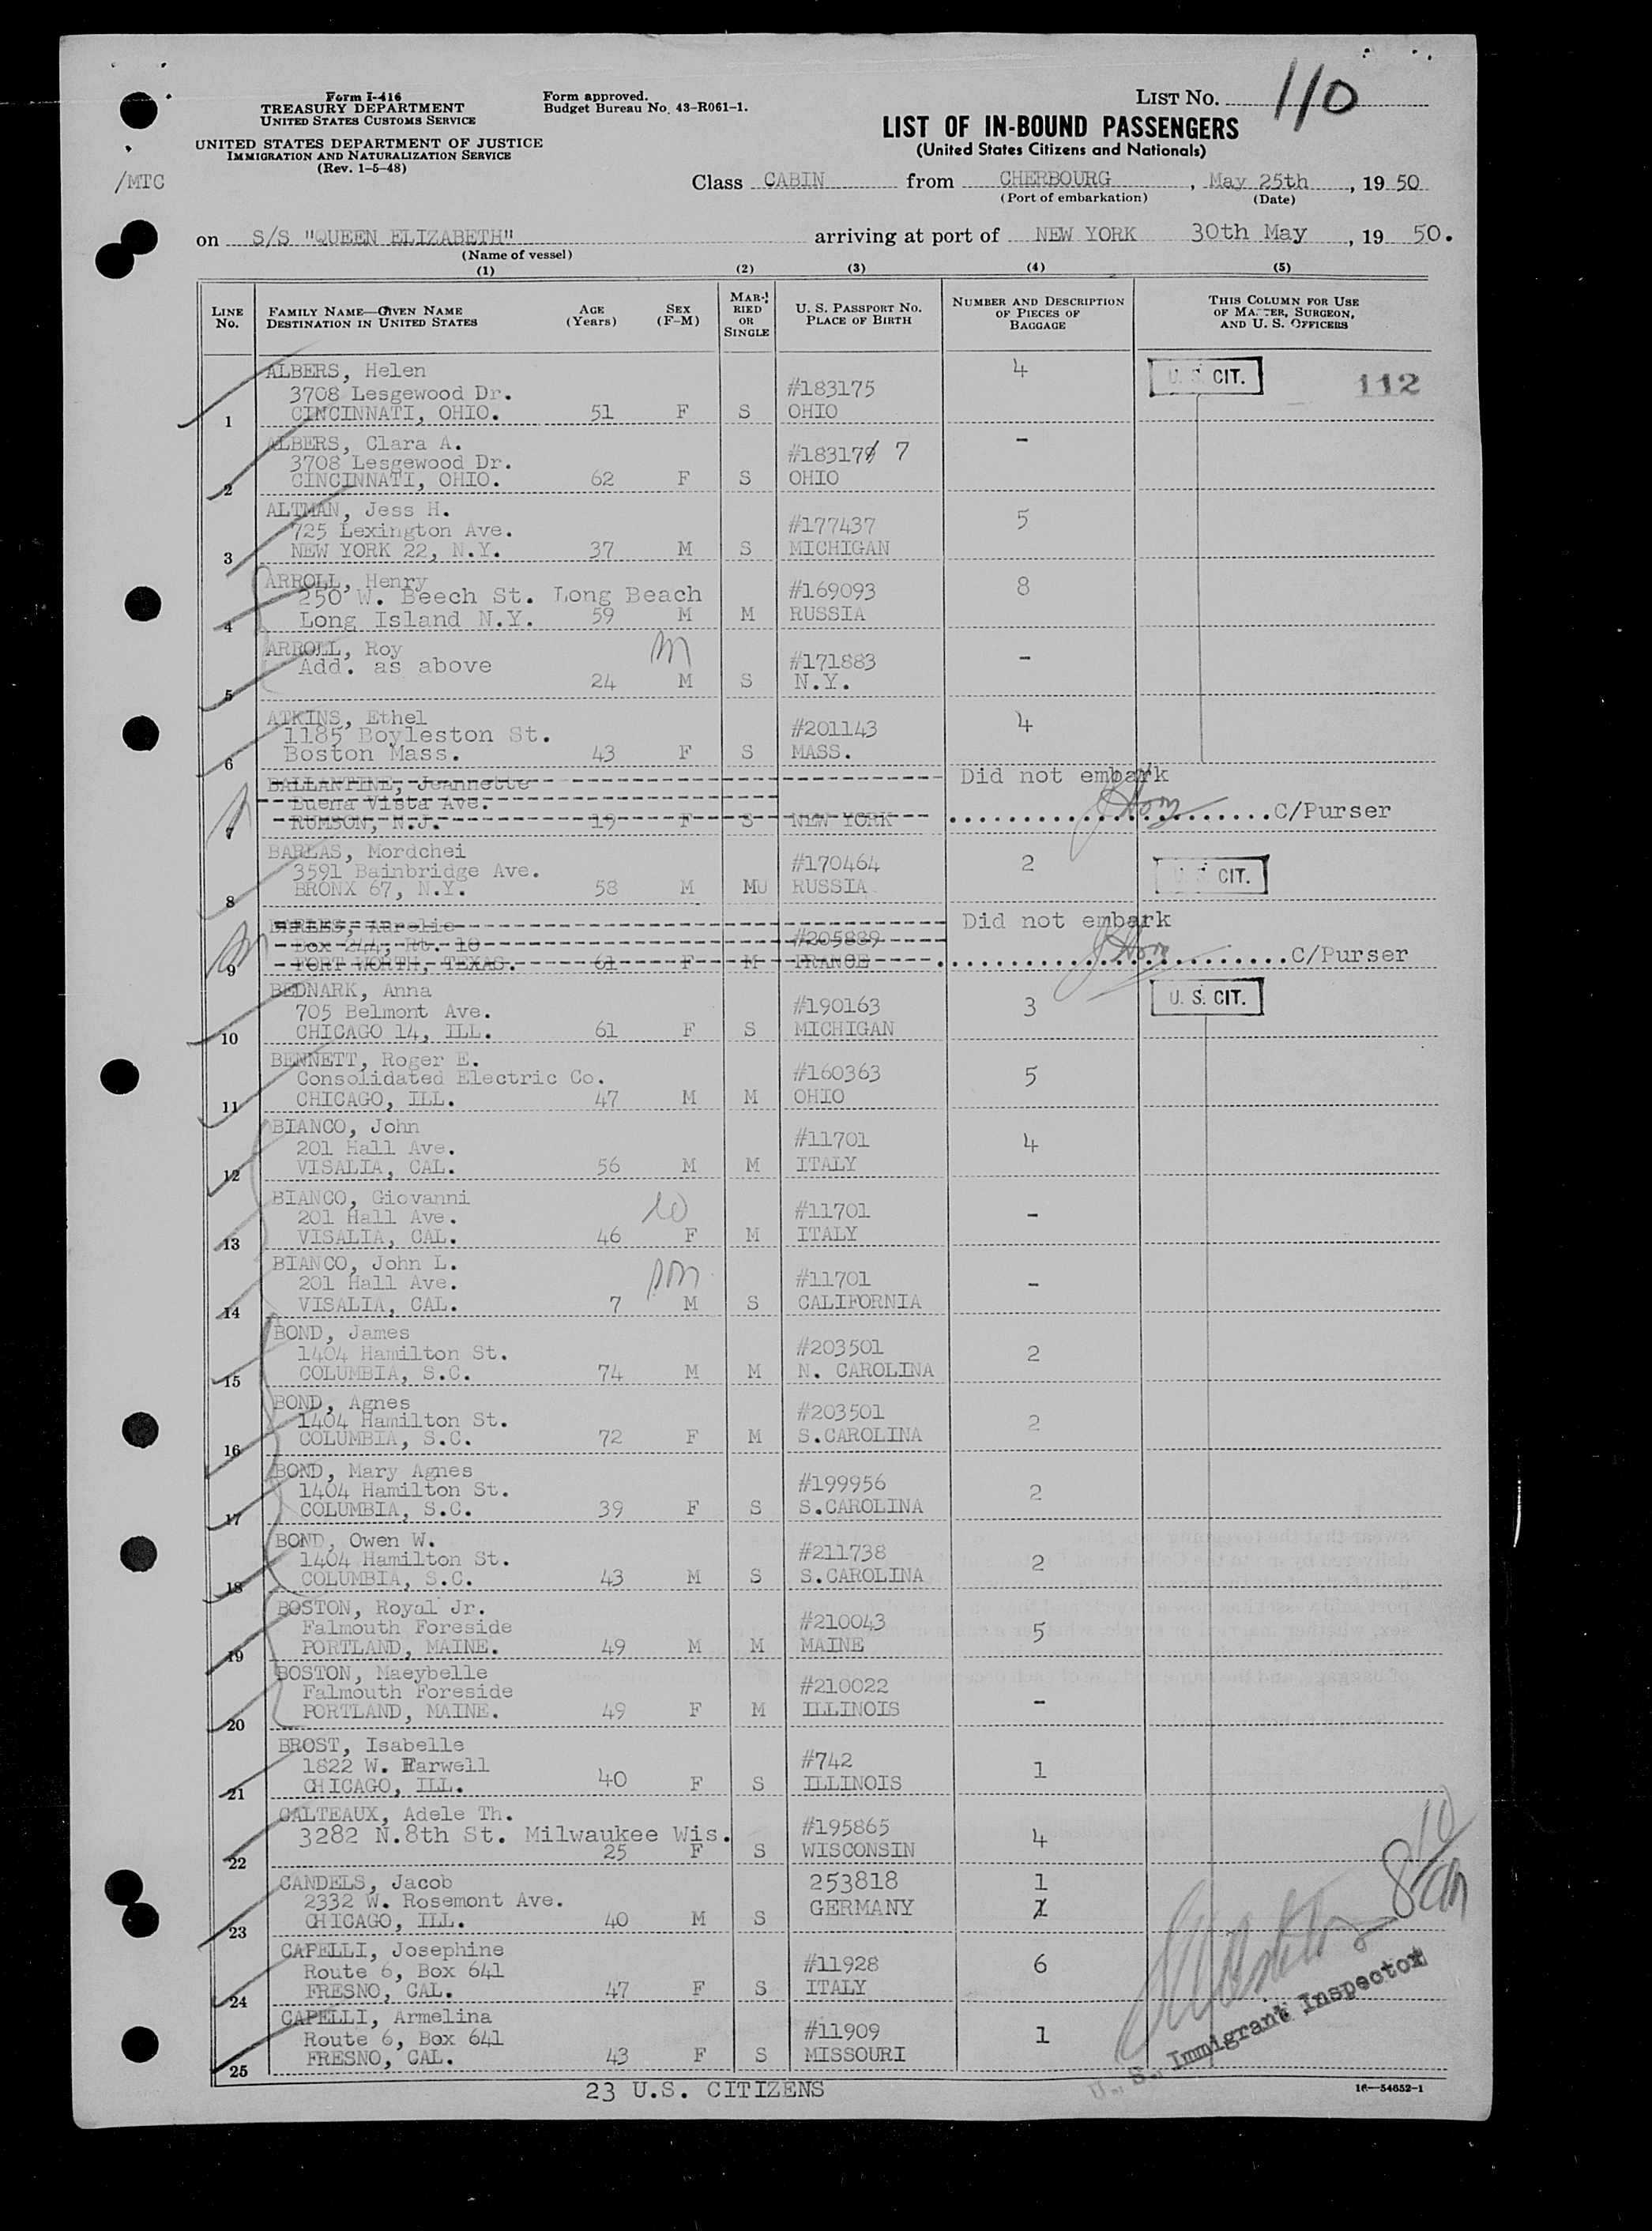 Form I-416
TREASURY DEPARTMENT
UNITED STATES CUSTOMS SERVICE
UNITED STATES DEPARTMENT OF JUSTICE
IMMIGRATION AND NATURALIZATION SERVICE
(Rev. 1-5-48)
Form approved.
Budget Bureau No. 43-R061-1.
LIST NO. 110
LIST OF IN-BOUND PASSENGERS
(United States Citizens and Nationals)
/MTC
Class CABIN from CHERBOURG, May 25th, 19 50
(Port of embarkation) (Date)
on S/S "QUEEN ELIZABETH" arriving at port of NEW YORK 30th May, 19 50.
(Name of vessel)
(1) (2) (3) (4) (5)
LINE No. FAMILY NAME—GIVEN NAME DESTINATION IN UNITED STATES AGE (Years) SEX (F-M) MARRIED OR SINGLE U. S. PASSPORT NO. PLACE OF BIRTH NUMBER AND DESCRIPTION OF PIECES OF BAGGAGE THIS COLUMN FOR USE OF MASTER, SURGEON, AND U. S. OFFICERS
ALBERS, Helen 4 U. S. CIT. 112
3708 Lesgewood Dr. #183175
1 CINCINNATI, OHIO. 51 F S OHIO
ALBERS, Clara A. -
3708 Lesgewood Dr. #18317 7
2 CINCINNATI, OHIO. 62 F S OHIO
ALTMAN, Jess H. 5
725 Lexington Ave. #177437
3 NEW YORK 22, N.Y. 37 M S MICHIGAN
ARROLL, Henry 8
250 W. Beech St. Long Beach #169093
4 Long Island N.Y. 59 M M RUSSIA
ARROLL, Roy m
Add. as above #171883 -
5 24 M S N.Y.
ATKINS, Ethel 4
1185 Boyleston St. #201143
6 Boston Mass. 43 F S MASS.
BALLANTINE, Jeannette Did not embark
Buena Vista Ave.
7 RUMSON, N.J. 19 F S NEW YORK C/Purser
BAREAS, Mordchei 2 U. S. CIT.
3591 Bainbridge Ave. #170464
8 BRONX 67, N.Y. 58 M M RUSSIA
BARLES, Aurelie Did not embark
Box 244, Rt. 10 #205889
9 FORT WORTH, TEXAS. 61 F M FRANCE C/Purser
BEDNARK, Anna 3 U. S. CIT.
705 Belmont Ave. #190163
10 CHICAGO 14, ILL. 61 F S MICHIGAN
BENNETT, Roger E. 5
Consolidated Electric Co. #160363
11 CHICAGO, ILL. 47 M M OHIO
BIANCO, John 4
201 Hall Ave. #11701
12 VISALIA, CAL. 56 M M ITALY
BIANCO, Giovanni -
201 Hall Ave. #11701
13 VISALIA, CAL. 46 F M ITALY
BIANCO, John L. -
201 Hall Ave. #11701
14 VISALIA, CAL. 7 M S CALIFORNIA
BOND, James 2
1404 Hamilton St. #203501
15 COLUMBIA, S.C. 74 M M N. CAROLINA
BOND, Agnes 2
1404 Hamilton St. #203501
16 COLUMBIA, S.C. 72 F M S.CAROLINA
BOND, Mary Agnes 2
1404 Hamilton St. #199956
17 COLUMBIA, S.C. 39 F S S.CAROLINA
BOND, Owen W. 2
1404 Hamilton St. #211738
18 COLUMBIA, S.C. 43 M S S.CAROLINA
BOSTON, Royal Jr. 5
Falmouth Foreside #210043
19 PORTLAND, MAINE. 49 M M MAINE
BOSTON, Maeybelle -
Falmouth Foreside #210022
20 PORTLAND, MAINE. 49 F M ILLINOIS
BROST, Isabelle 1
1822 W. Farwell #742
21 CHICAGO, ILL. 40 F S ILLINOIS
CALTEAUX, Adele Th. 4
3282 N.8th St. Milwaukee Wis. #195865
22 25 F S WISCONSIN
CANDELS, Jacob 253818 1
2332 W. Rosemont Ave. GERMANY
23 CHICAGO, ILL. 40 M S
CAPELLI, Josephine 6
Route 6, Box 641 #11928
24 FRESNO, CAL. 47 F S ITALY
CAPELLI, Armelina 1
Route 6, Box 641 #11909
25 FRESNO, CAL. 43 F S MISSOURI
U. S. Immigrant Inspector
23 U.S. CITIZENS
16—54652-1